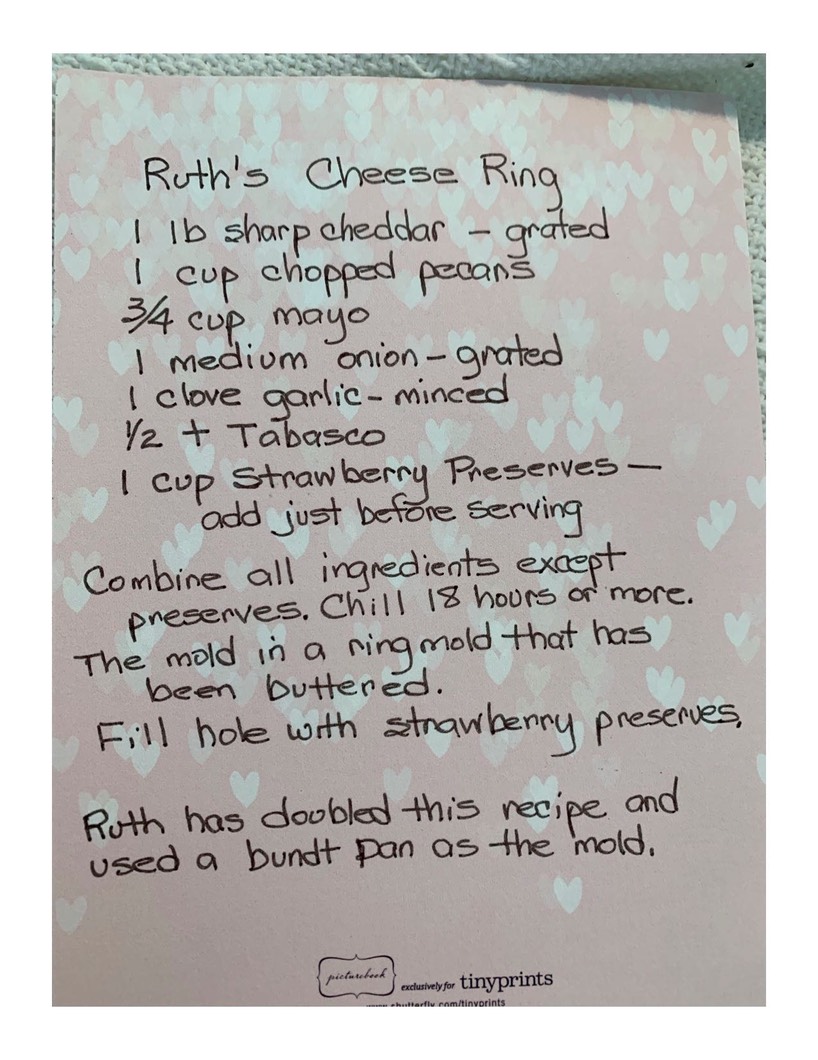 Ruth's Cheese Ring
1 lb sharp cheddar - grated
1 cup chopped pecans
3/4 cup mayo
1 medium onion - grated
1 clove garlic - minced
1/2 t Tabasco
1 cup Strawberry Preserves -
add just before serving
Combine all ingredients except
preserves. Chill 18 hours or more.
The mold in a ring mold that has
been buttered.
Fill hole with strawberry preserves.
Ruth has doobled this recipe and
used a bundt pan as the mold.
picturebook exclusively for tinyprints
www.shutterfly.com/tinyprints